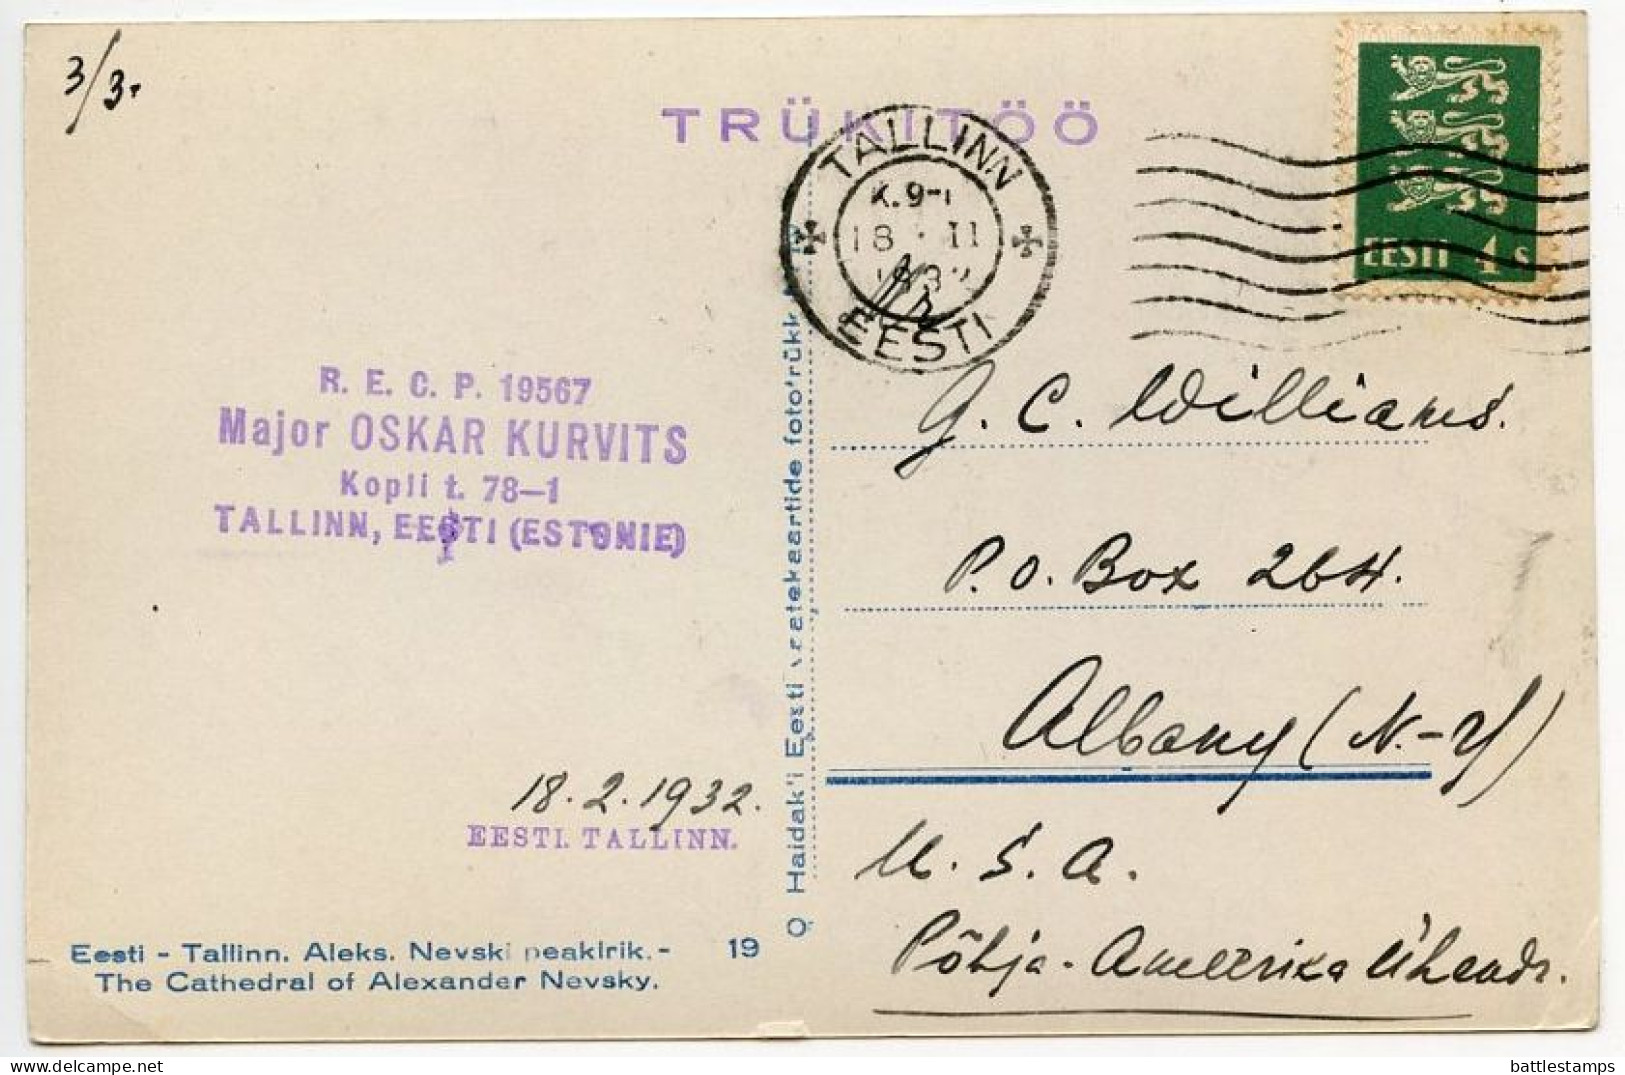 3/3.
TRÜKITÖÖ
TALLINN
K. 9-1
18 · II
1932
EESTI
EESTI 4 s
R. E. C. P. 19567
Major OSKAR KURVITS
Kopli t. 78—1
TALLINN, EESTI (ESTONIE)
G. C. Williams.
P. O. Box 264.
Albany (N.-Y)
U. S. A.
Põhja-Ameerika Ühendr.
18. 2. 1932.
EESTI. TALLINN.
Haidak'i Eesti vaatekaartide foto'rükk
Eesti - Tallinn. Aleks. Nevski peakirik. - 19
The Cathedral of Alexander Nevsky.
battlestamps